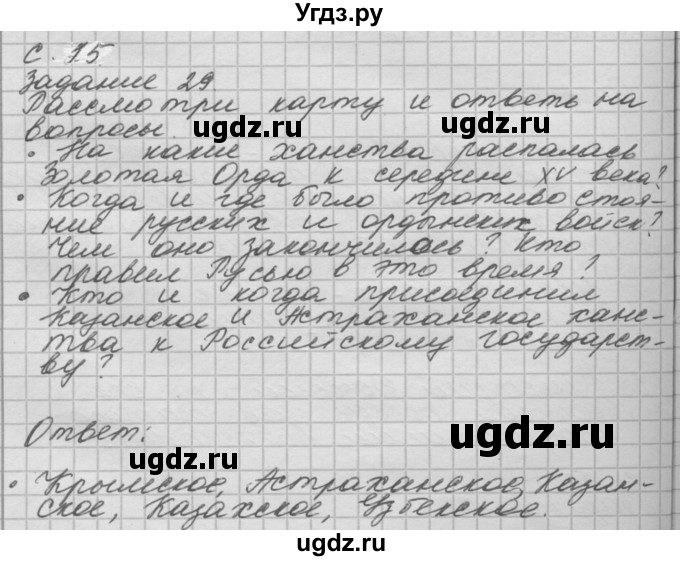 Угдз.ру
с. 15
Задание 29.
Рассмотри карту и ответь на
вопросы.
ugdz.ru
ugdz.ru
• На какие ханства распалась
Золотая Орда к середине XV века?
• Когда и где было противостоя-
ние русских и ордынских войск?
Чем оно закончилось? Кто
правил Русью в это время?
• Кто и когда присоединил
Казанское и Астраханское ханс-
тва к Российскому государст-
ву?
Ответ:
ugdz.ru
ugdz.ru
• Крымское, Астраханское, Казан-
ское, Казахское, Узбекское.
ugdz.ru